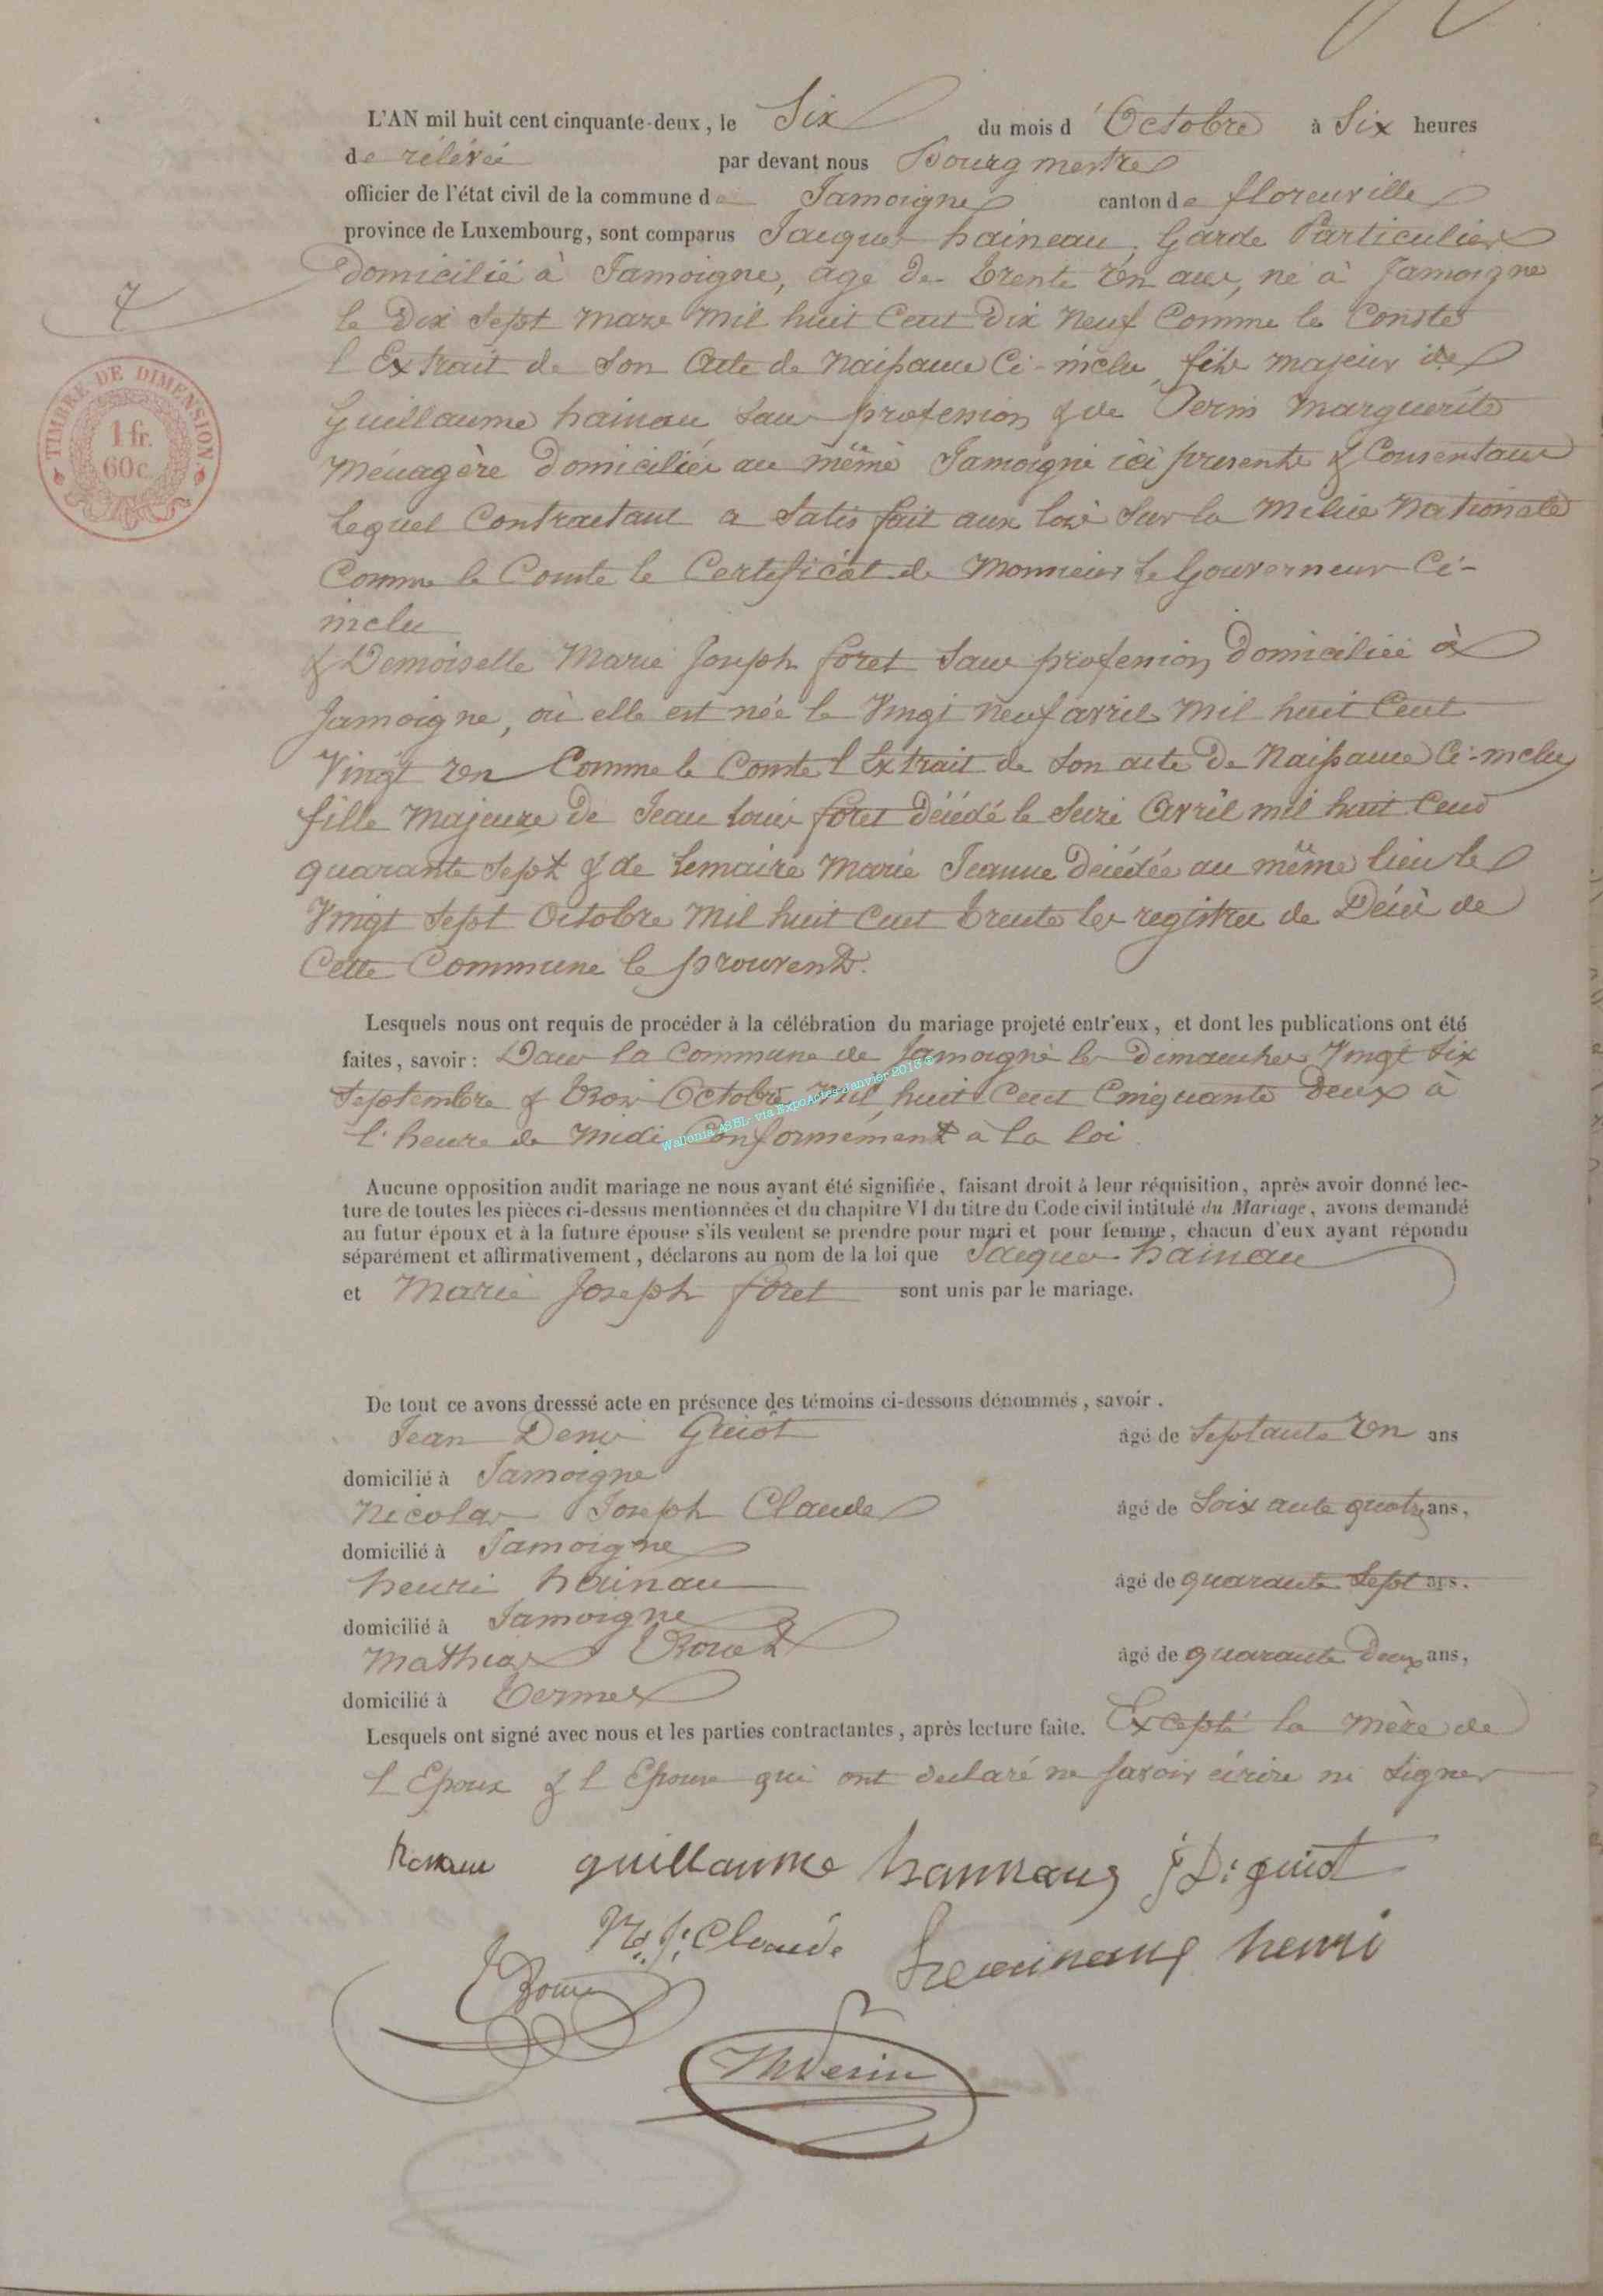 L'AN mil huit cent cinquante-deux, le Six du mois d'Octobre à Six heures
de rélévée par devant nous Bourgmestre
officier de l'état civil de la commune de Jamoigne canton de florenville
province de Luxembourg, sont comparus Jacques haineau, Garde Particulier
7
domicilié à Jamoigne, age de trente un ans, né à Jamoigne
le Dix Sept Mars Mil huit Cent Dix Neuf Comme le Conste
TIMBRE DE DIMENSION
1 fr.
60 c.
l Extrait de Son Acte de Naissance Ci-inclu, fils majeur de
Guillaume hainau Sans profession & de Marguerite
Ménagère domiciliés au même Jamoigne ici présents & Consentans
Lequel Contractant a Satisfait aux lois Sur la Milice Nationale
Comme le Conste le Certificat de Monsieur le Gouverneur Ci-
inclu
& Demoiselle Marie Joseph foret Sans profession domiciliée à
Jamoigne, où elle est née le Vingt neuf avril Mil huit Cent
Vingt un Comme le Conste l Extrait de Son acte de Naissance Ci-inclu
fille Majeure de Jean Louis foret décédé le Seize Avril mil huit Cent
quarante Sept & de Lemaire Marie Jeanne décédée au même lieu le
Vingt Sept Octobre Mil huit Cent trente les registres de Décès de
Cette Commune le prouvent.
Lesquels nous ont requis de procéder à la célébration du mariage projeté entr'eux, et dont les publications ont été
faites, savoir : Dans la Commune de Jamoigne les dimanches Vingt Six
Septembre & trois Octobre Mil huit Cent Cinquante Deux à
l'heure de Midi Conformément à la loi.
Wallonia ASBL- via ExpoActes-Janvier 2013 ©
Aucune opposition audit mariage ne nous ayant été signifiée, faisant droit à leur réquisition, après avoir donné lec-
ture de toutes les pièces ci-dessus mentionnées et du chapitre VI du titre du Code civil intitulé du Mariage, avons demandé
au futur époux et à la future épouse s'ils veulent se prendre pour mari et pour femme, chacun d'eux ayant répondu
séparément et affirmativement, déclarons au nom de la loi que Jacques hainau
et Marie Joseph foret sont unis par le mariage.
De tout ce avons dresssé acte en présence des témoins ci-dessous dénommés, savoir.
Jean Denis Guiot âgé de Septante un ans
domicilié à Jamoigne
Nicolas Joseph Claude âgé de Soixante quatre ans,
domicilié à Jamoigne
henri hainau âgé de quarante Sept ans.
domicilié à Jamoigne
Mathias âgé de quarante Deux ans,
domicilié à Termes
Lesquels ont signé avec nous et les parties contractantes, après lecture faite. Excepté la mère de
l Epoux & l Epouse qui ont déclaré ne savoir écrire ni signer
guillaume hannaus J D: guiot
N: J: Claude henri